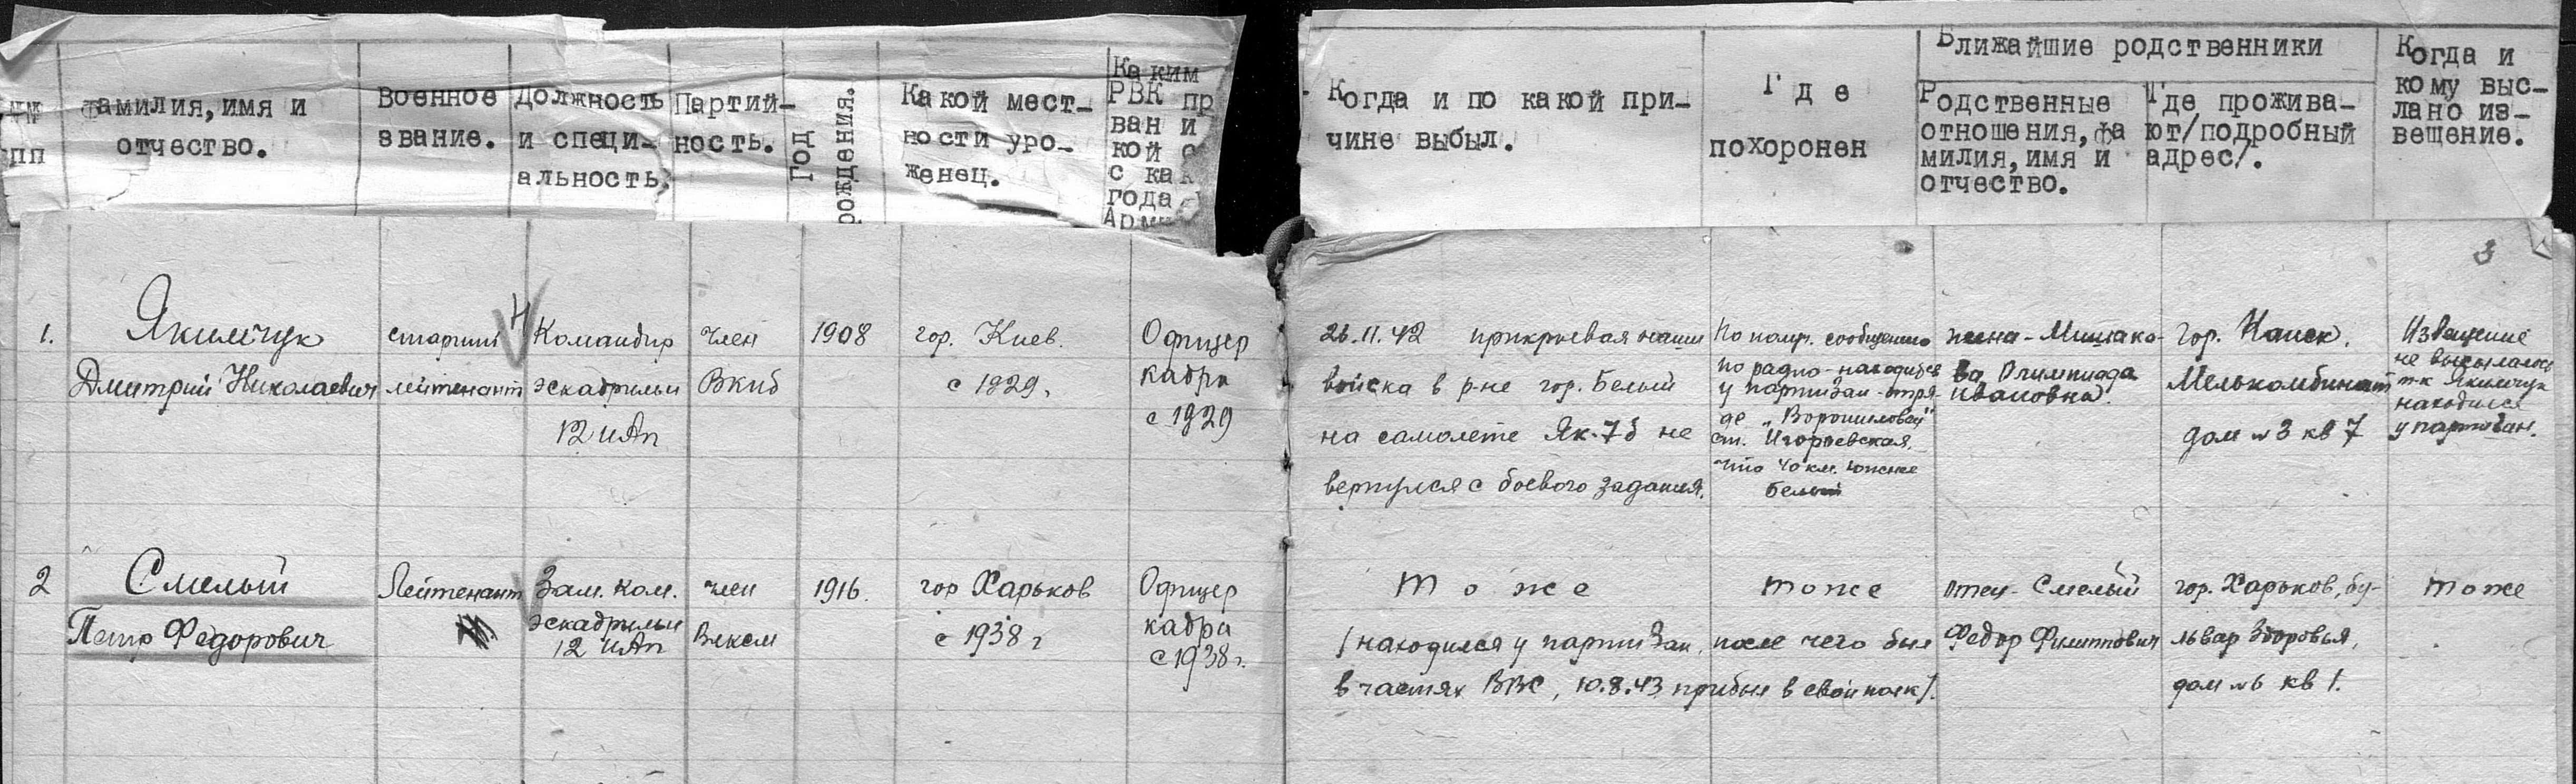 №№ пп
Фамилия, имя и отчество.
Военное звание.
Должность и специальность.
Партий-
ность.
Год рождения.
Какой мест-
ности уро-
женец.
Каким
РВК пр
ван и
кой с
с как
года
Арми
Когда и по какой при-
чине выбыл.
Где
похоронен
Ближайшие родственники
Родственные
отношения, фа
милия, имя и
отчество.
Где прожива-
ют/подробный
адрес/.
Когда и
кому выс-
лано из-
вещение.
3
1.
Якимчук
Дмитрий Николаевич
старший
лейтенант
Командир
эскадрильи
12 иАп
член
Вкпб
1908
гор. Киев.
с 1929,
Офицер
кадра
с 1929
26.11.42 прикрывая наши
войска в р-не гор. Белый
на самолете Як-7б не
вернулся с боевого задания.
По получ. сообщению
по радио - находился
у партизан - отря-
де „Ворошиловец"
ст. Игорьевская
что 40 км. южнее
Белый
жена - Мишако-
ва Олимпиада
Ивановна.
гор. Канск.
Мелькомбинат
дом № 3 кв 7
Извещение
не высылалось
т-к Якимчук
находился
у партизан.
2
Смелый
Петр Федорович
Лейтенант
Зам. Ком.
эскадрильи
12 иАп
член
Влксм
1916.
гор Харьков
с 1938 г
Офицер
кадра
с 1938 г.
То же
/находился у партизан, после чего был
в частях ВВС, 10.8.43 прибыл в свой полк/.
тоже
отец - Смелый
Федор Филиппович
гор. Харьков, бу-
львар Здоровья,
дом № 6 кв 1.
тоже